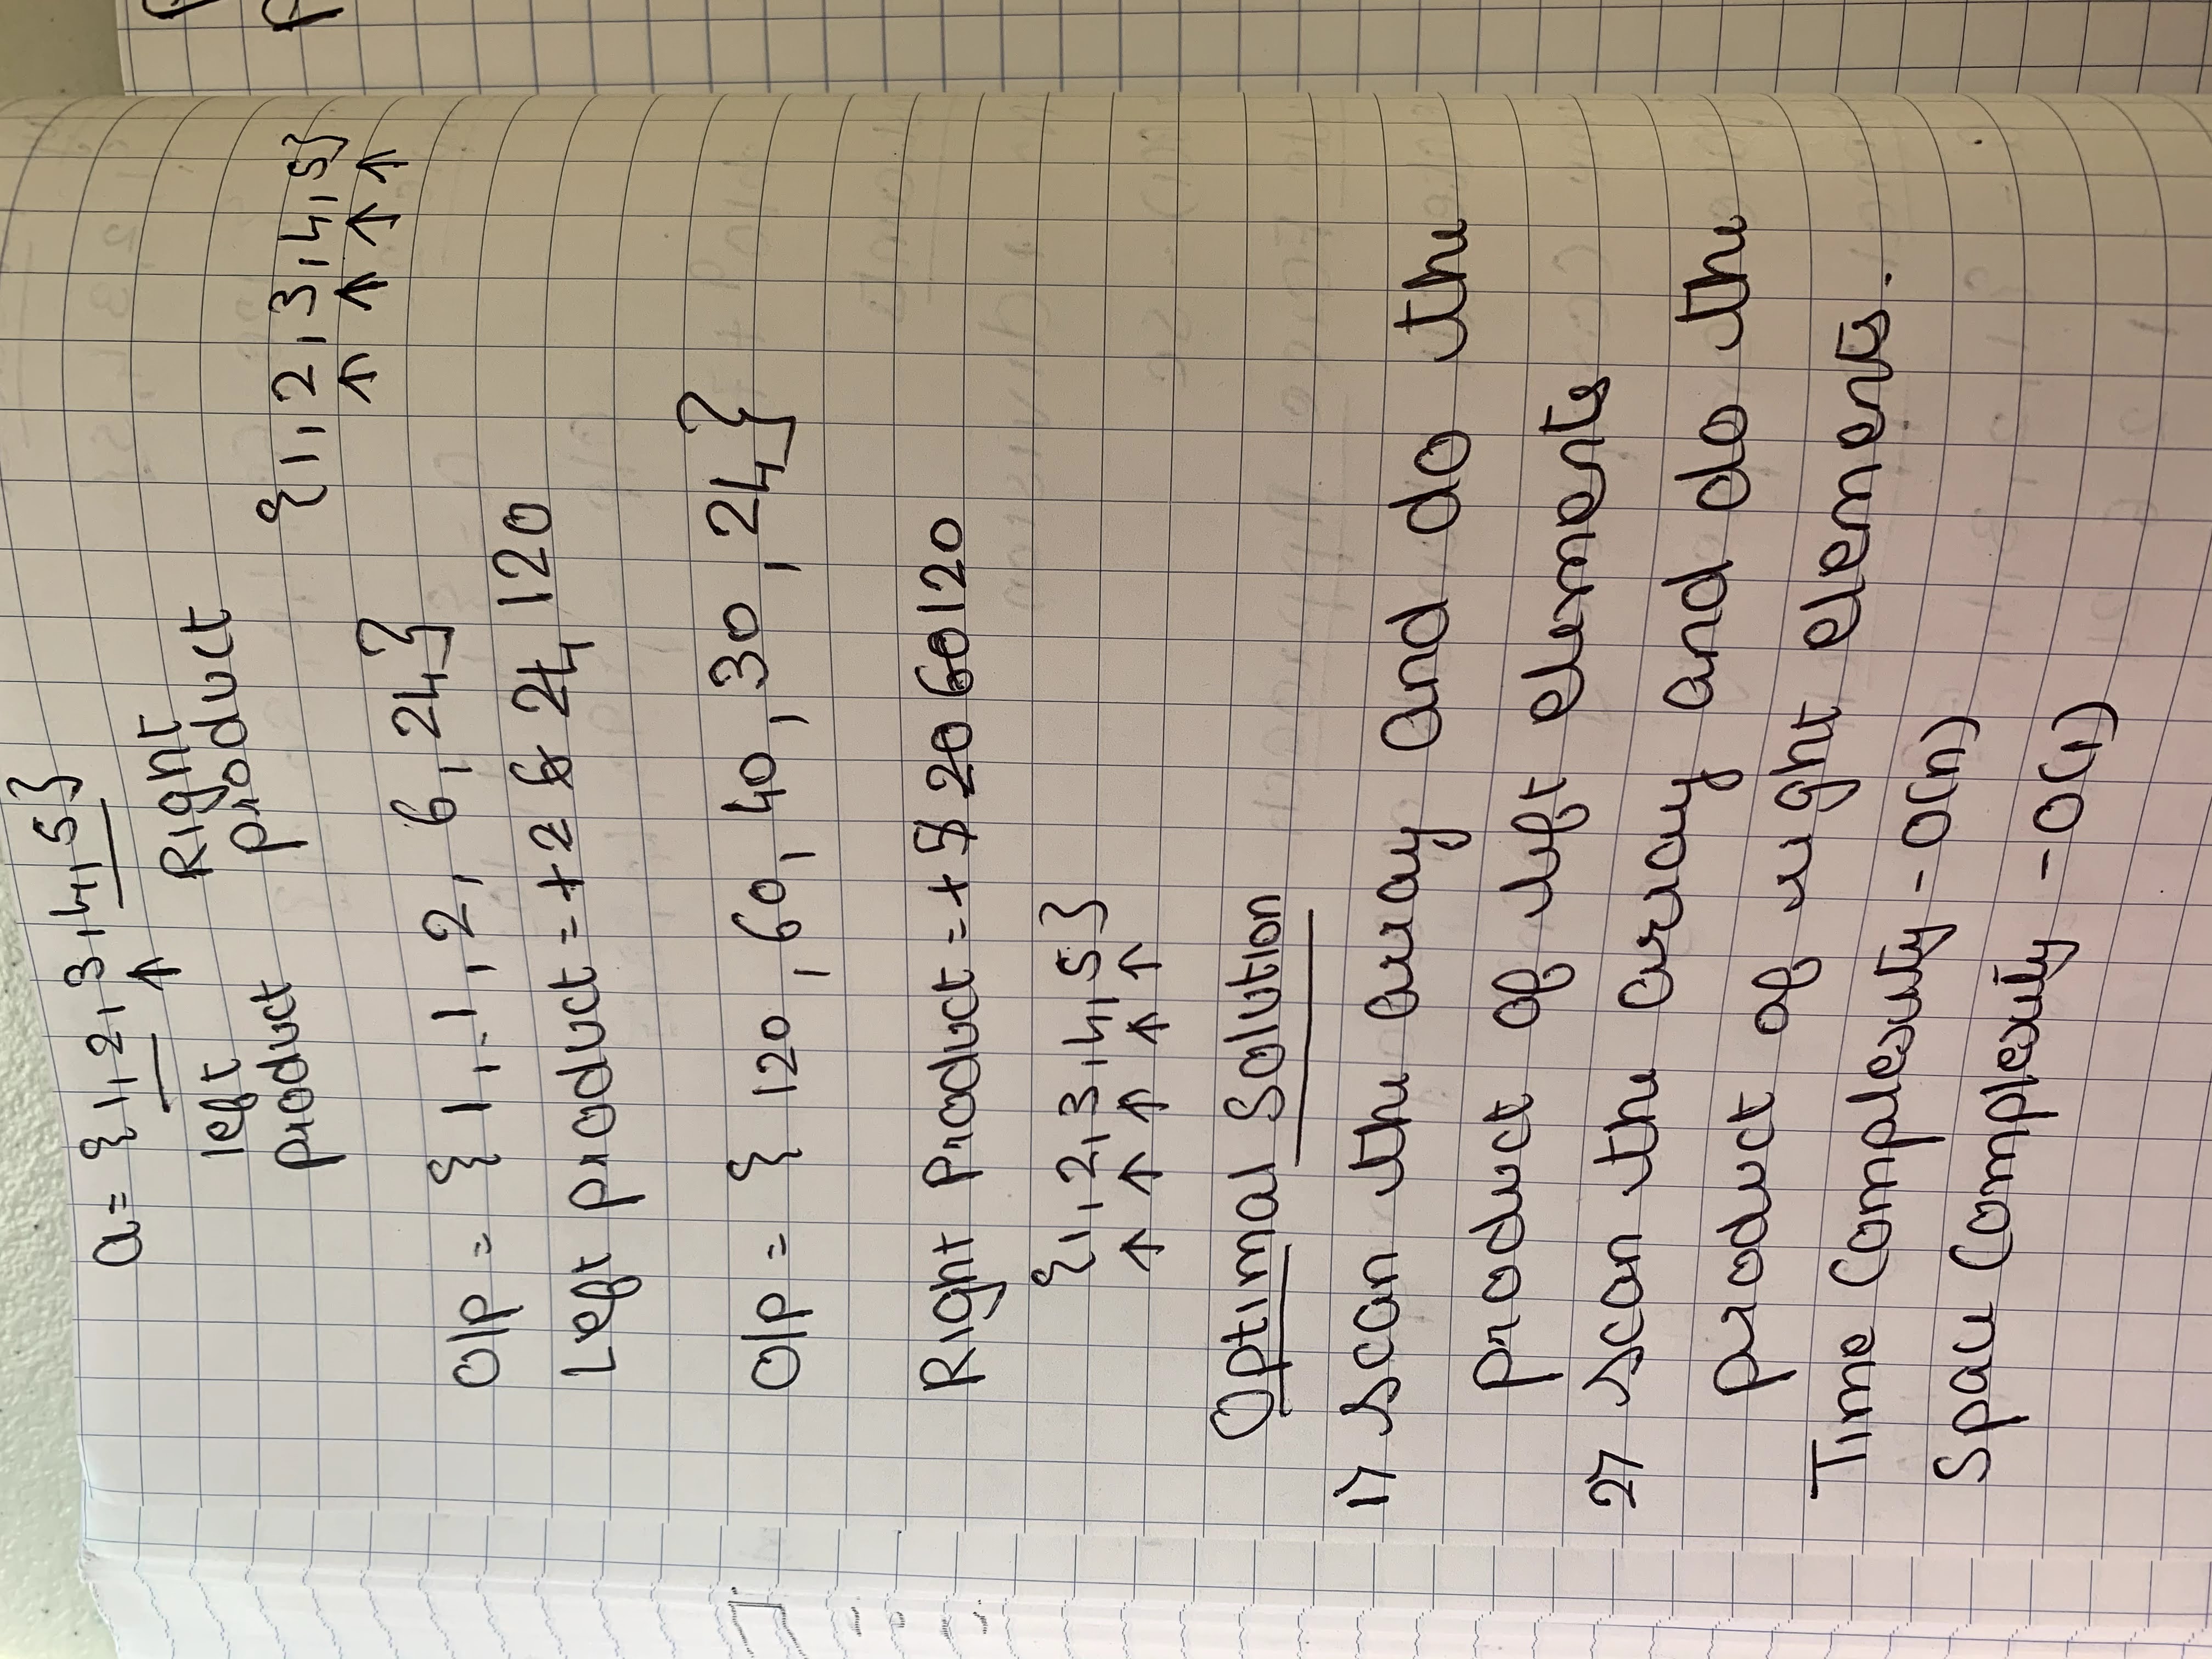 a = {1, 2, 3, 4, 5}
left product
Right product
{1, 2, 3, 4, 5}
O/P = {1, 1, 2, 6, 24}
Left product = 1 2 6 24, 120
O/P = { 120, 60, 40, 30, 24}
Right Product = 1 5 20 60 120
{1, 2, 3, 4, 5}
Optimal Solution
1> Scan the array and do the
product of left elements
2> Scan the array and do the
product of right elements.
Time Complexity - O(n)
Space Complexity - O(1)